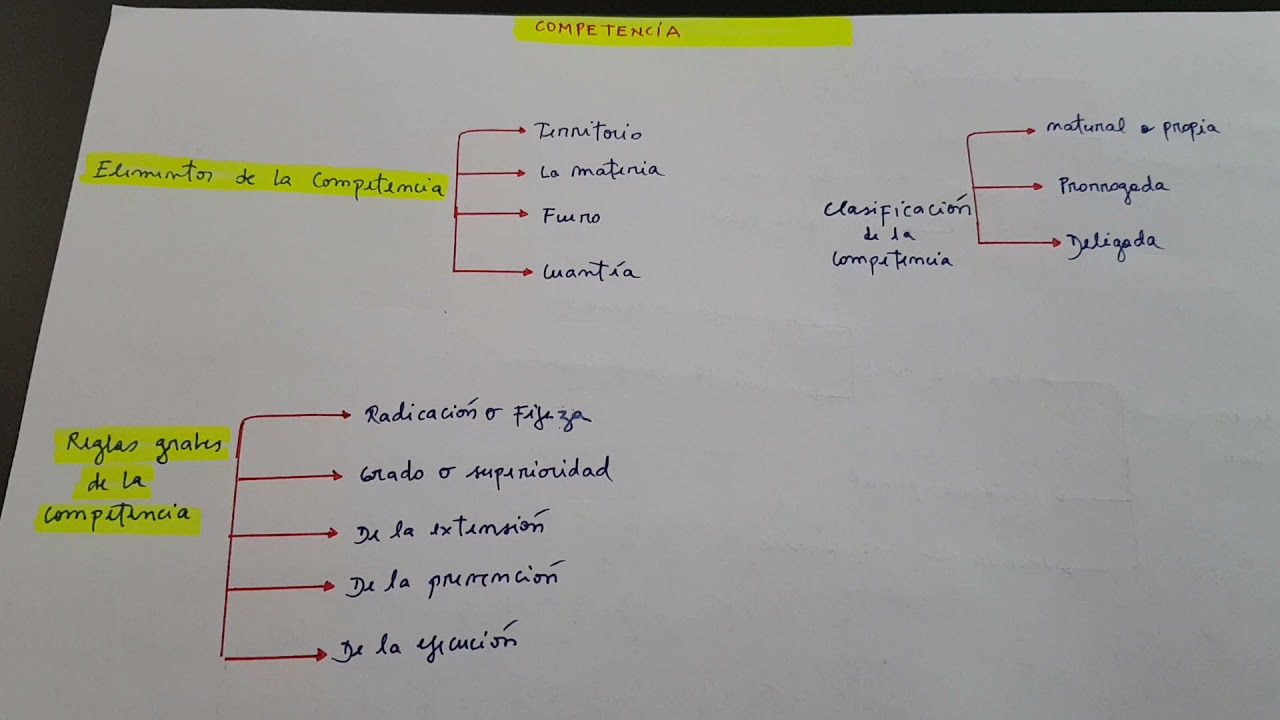 COMPETENCÍA
Elementos de la Competencia
Territorio
La materia
Fuero
Cuantía
Clasificación
de la
Competencia
natural o propia
Prorrogada
Delegada
Reglas grales
de la
Competencia
Radicación o Fijeza
Grado o superioridad
De la extensión
De la prevención
De la ejecución